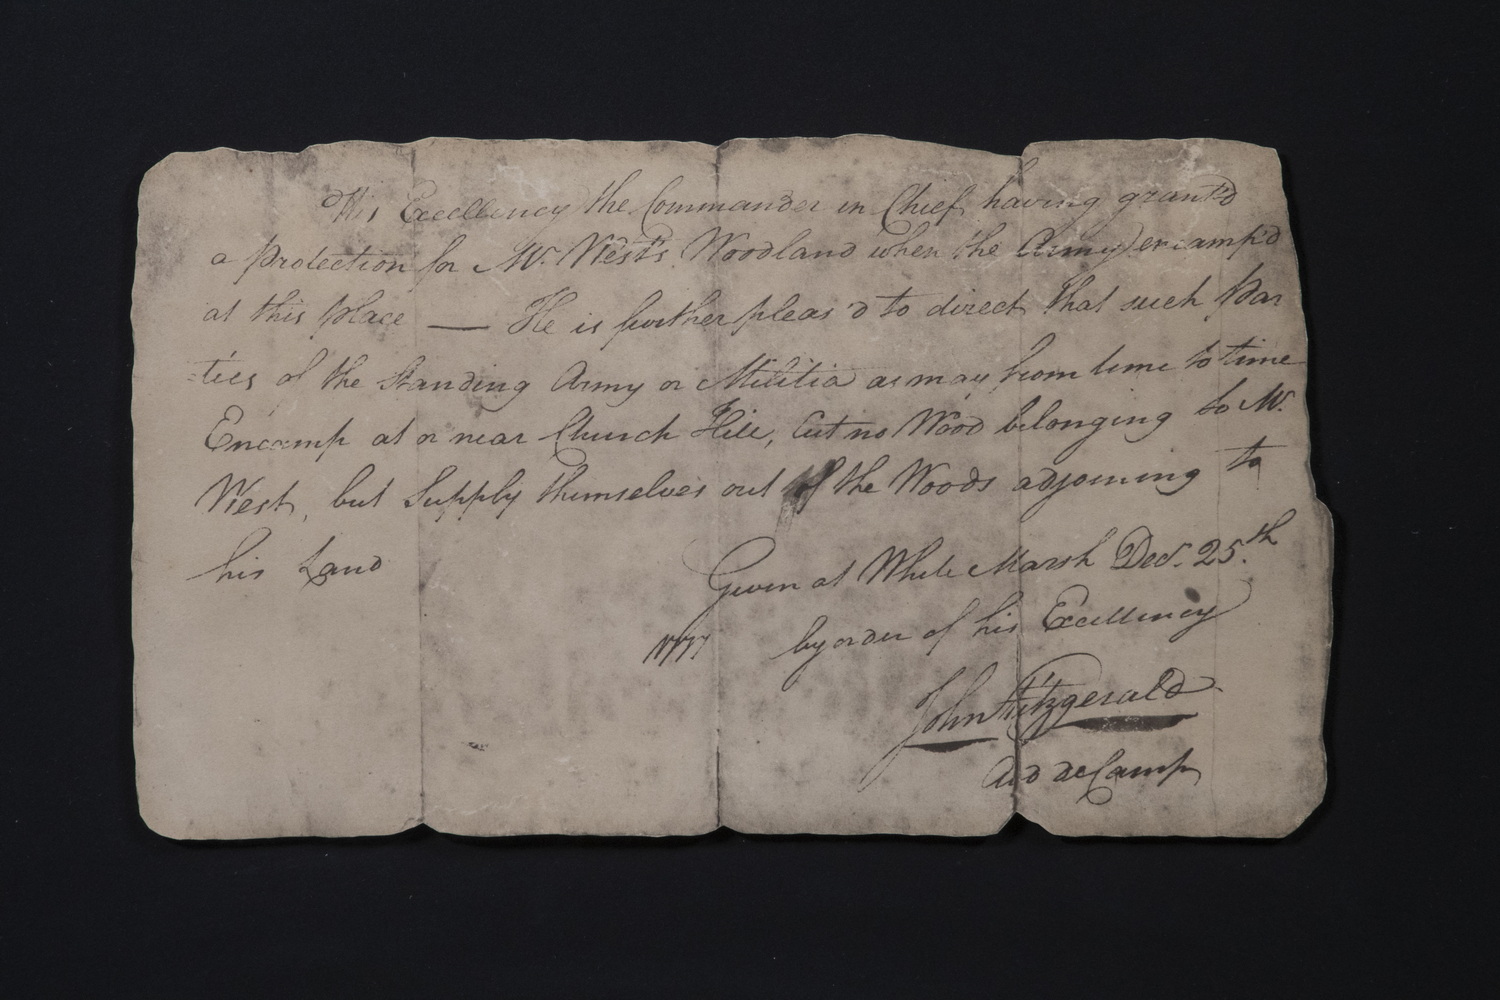 His Excellency the Commander in Chief, having grant'd
a Protection for Mr. West's Woodland when the Army encamp'd
at this place — He is further pleas'd to direct that such Par
=ties of the Standing Army or Militia as may from time to time
Encamp at or near Church Hill, Cut no Wood belonging to Mr.
West, but Supply themselves out of the Woods adjoining to
his Land
Given at White Marsh Decr. 25th.
1777 by order of his Excellency
John Fitzgerald
Aid de Camp